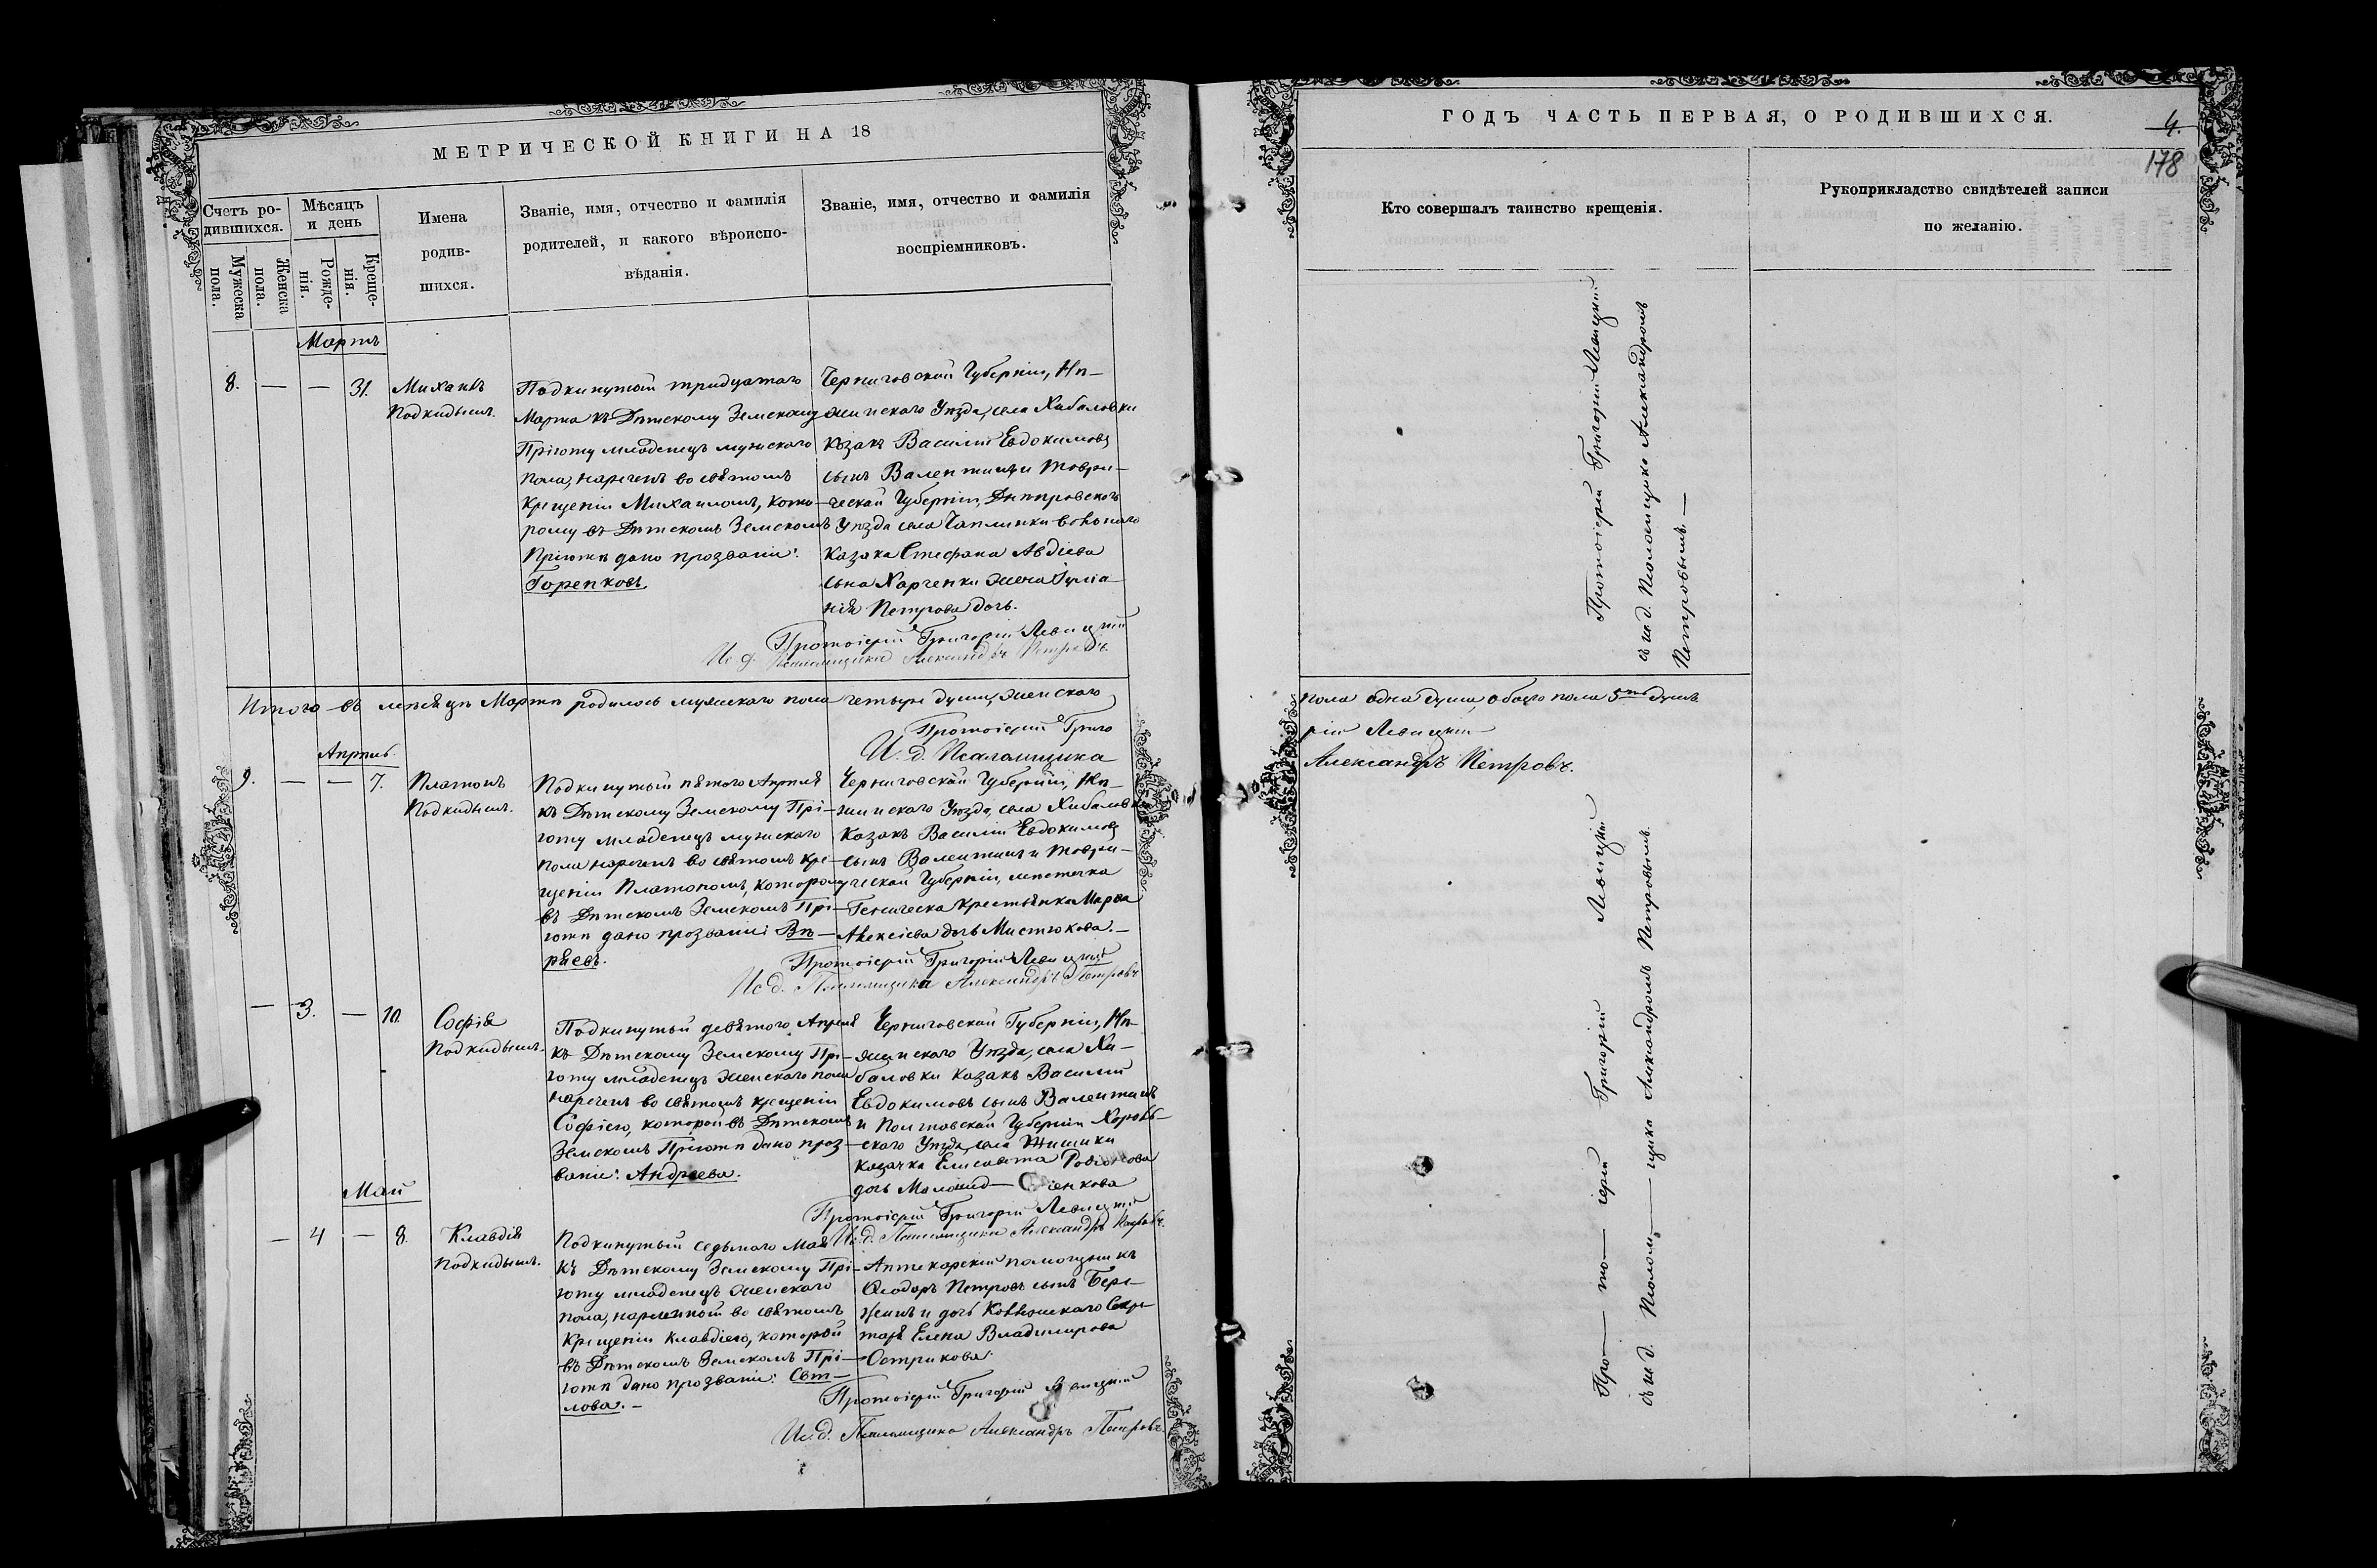 МЕТРИЧЕСКОЙ КНИГИ НА 18
Счетъ ро-
дившихся.
Мужеска
пола.
Женска
пола.
Мѣсяцъ
и день
Рожде-
нія.
Креще-
нія.
Имена
родив-
шихся.
Званіе, имя, отчество и фамилія
родителей, и какого вѣроиспо-
вѣданія.
Званіе, имя, отчество и фамилія
воспріемниковъ.
Мартъ
8. — — 31.
Михаилъ
Подкидышъ.
Подкинутый тридцатаго
Марта къ Дѣтскому Земскому
Пріюту младенецъ мужскаго
пола, нареченъ во святомъ
Крещеніи Михаиломъ, кото-
рому въ Дѣтскомъ Земскомъ
Пріютѣ дано прозваніе:
Горенковъ.
Черниговской Губерніи, Нѣ-
жинскаго Уѣзда, села Хибаловки
Козакъ Василій Евдокимовъ
сынъ Валентинъ и Таври-
ческой Губерніи, Днѣпровскаго
Уѣзда села Чаплинки вольнаго
Казака Стефана Авдіева
сына Харченки жена Іуліа-
нія Петрова дочь.
Протоіерей Григорій Левицкій
И. д. Псаломщика Александръ Петровъ.
Итого въ мѣсяцѣ Мартѣ родилось мужескаго пола четыре души, женскаго
Протоіерей Григо
И. д. Псаломщика
Апрѣль
9. — — 7.
Платонъ
Подкидышъ.
Подкинутый пятого Апрѣля
къ Дѣтскому Земскому Прі-
юту младенецъ мужскаго
пола нареченъ во святомъ кре-
щеніи Платономъ, которому
въ Дѣтскомъ Земскомъ Прі-
ютѣ дано прозваніе: Вѣ-
ряевъ.
Черниговской Губерніи, Нѣ-
жинскаго Уѣзда, села Хибаловки
Казакъ Василій Евдокимовъ
сынъ Валентинъ и Таври-
ческой Губерніи, мѣстечка
Геническа крестьянка Марѳа
Алексіева дочь Мистюкова.—
Протоіерей Григорій Левицкій
И. д. Псаломщика Александръ Петровъ
— 3. — 10.
Софія
Подкидышъ.
Подкинутый девятого Апрѣля
къ Дѣтскому Земскому Прі-
юту младенецъ женскаго пола
нареченъ во святомъ крещеніи
Софіею, которой въ Дѣтскомъ
Земскомъ Пріютѣ дано проз-
ваніе: Андреева.
Черниговской Губерніи, Нѣ-
жинскаго Уѣзда, села Хи-
баловки казакъ Василій
Евдокимовъ сынъ Валентинъ
и Полтавской Губерніи Хороль-
скаго Уѣзда, села
козачка Елисавета Родіонова
дочь
Протоіерей Григорій Левицкій
И. д. Псаломщика Александръ Петровъ.
Май
— 4 — 8.
Клавдія
Подкидышъ.
Подкинутый седьмого Мая
къ Дѣтскому Земскому Прі-
юту младенецъ женскаго
пола, нареченной во святомъ
Крещеніи Клавдіею, которой
въ Дѣтскомъ Земскомъ Прі-
ютѣ дано прозваніе: Свѣт-
лова.—
Аптекарскій помощникъ
Ѳеодоръ Петровъ сынъ Бере-
жинъ и дочь Секре-
таря Елена Владимирова
Острикова.
Протоіерей Григорій Левицкій
И. д. Псаломщика Александръ Петровъ.
ГОДЪ ЧАСТЬ ПЕРВАЯ, О РОДИВШИХСЯ.
4.
178
Кто совершалъ таинство крещенія.
Рукоприкладство свидѣтелей записи
по желанію.
Протоіерей Григорій Левицкій
съ и. д. Псаломщика Александромъ
Петровымъ.—
пола одна душа, обоего пола 5ть душъ.
рій Левицкій
Александръ Петровъ.
Про— то— іерей Григорій Левицкій
съ и. д. Псалом— щика Александромъ Петровымъ.